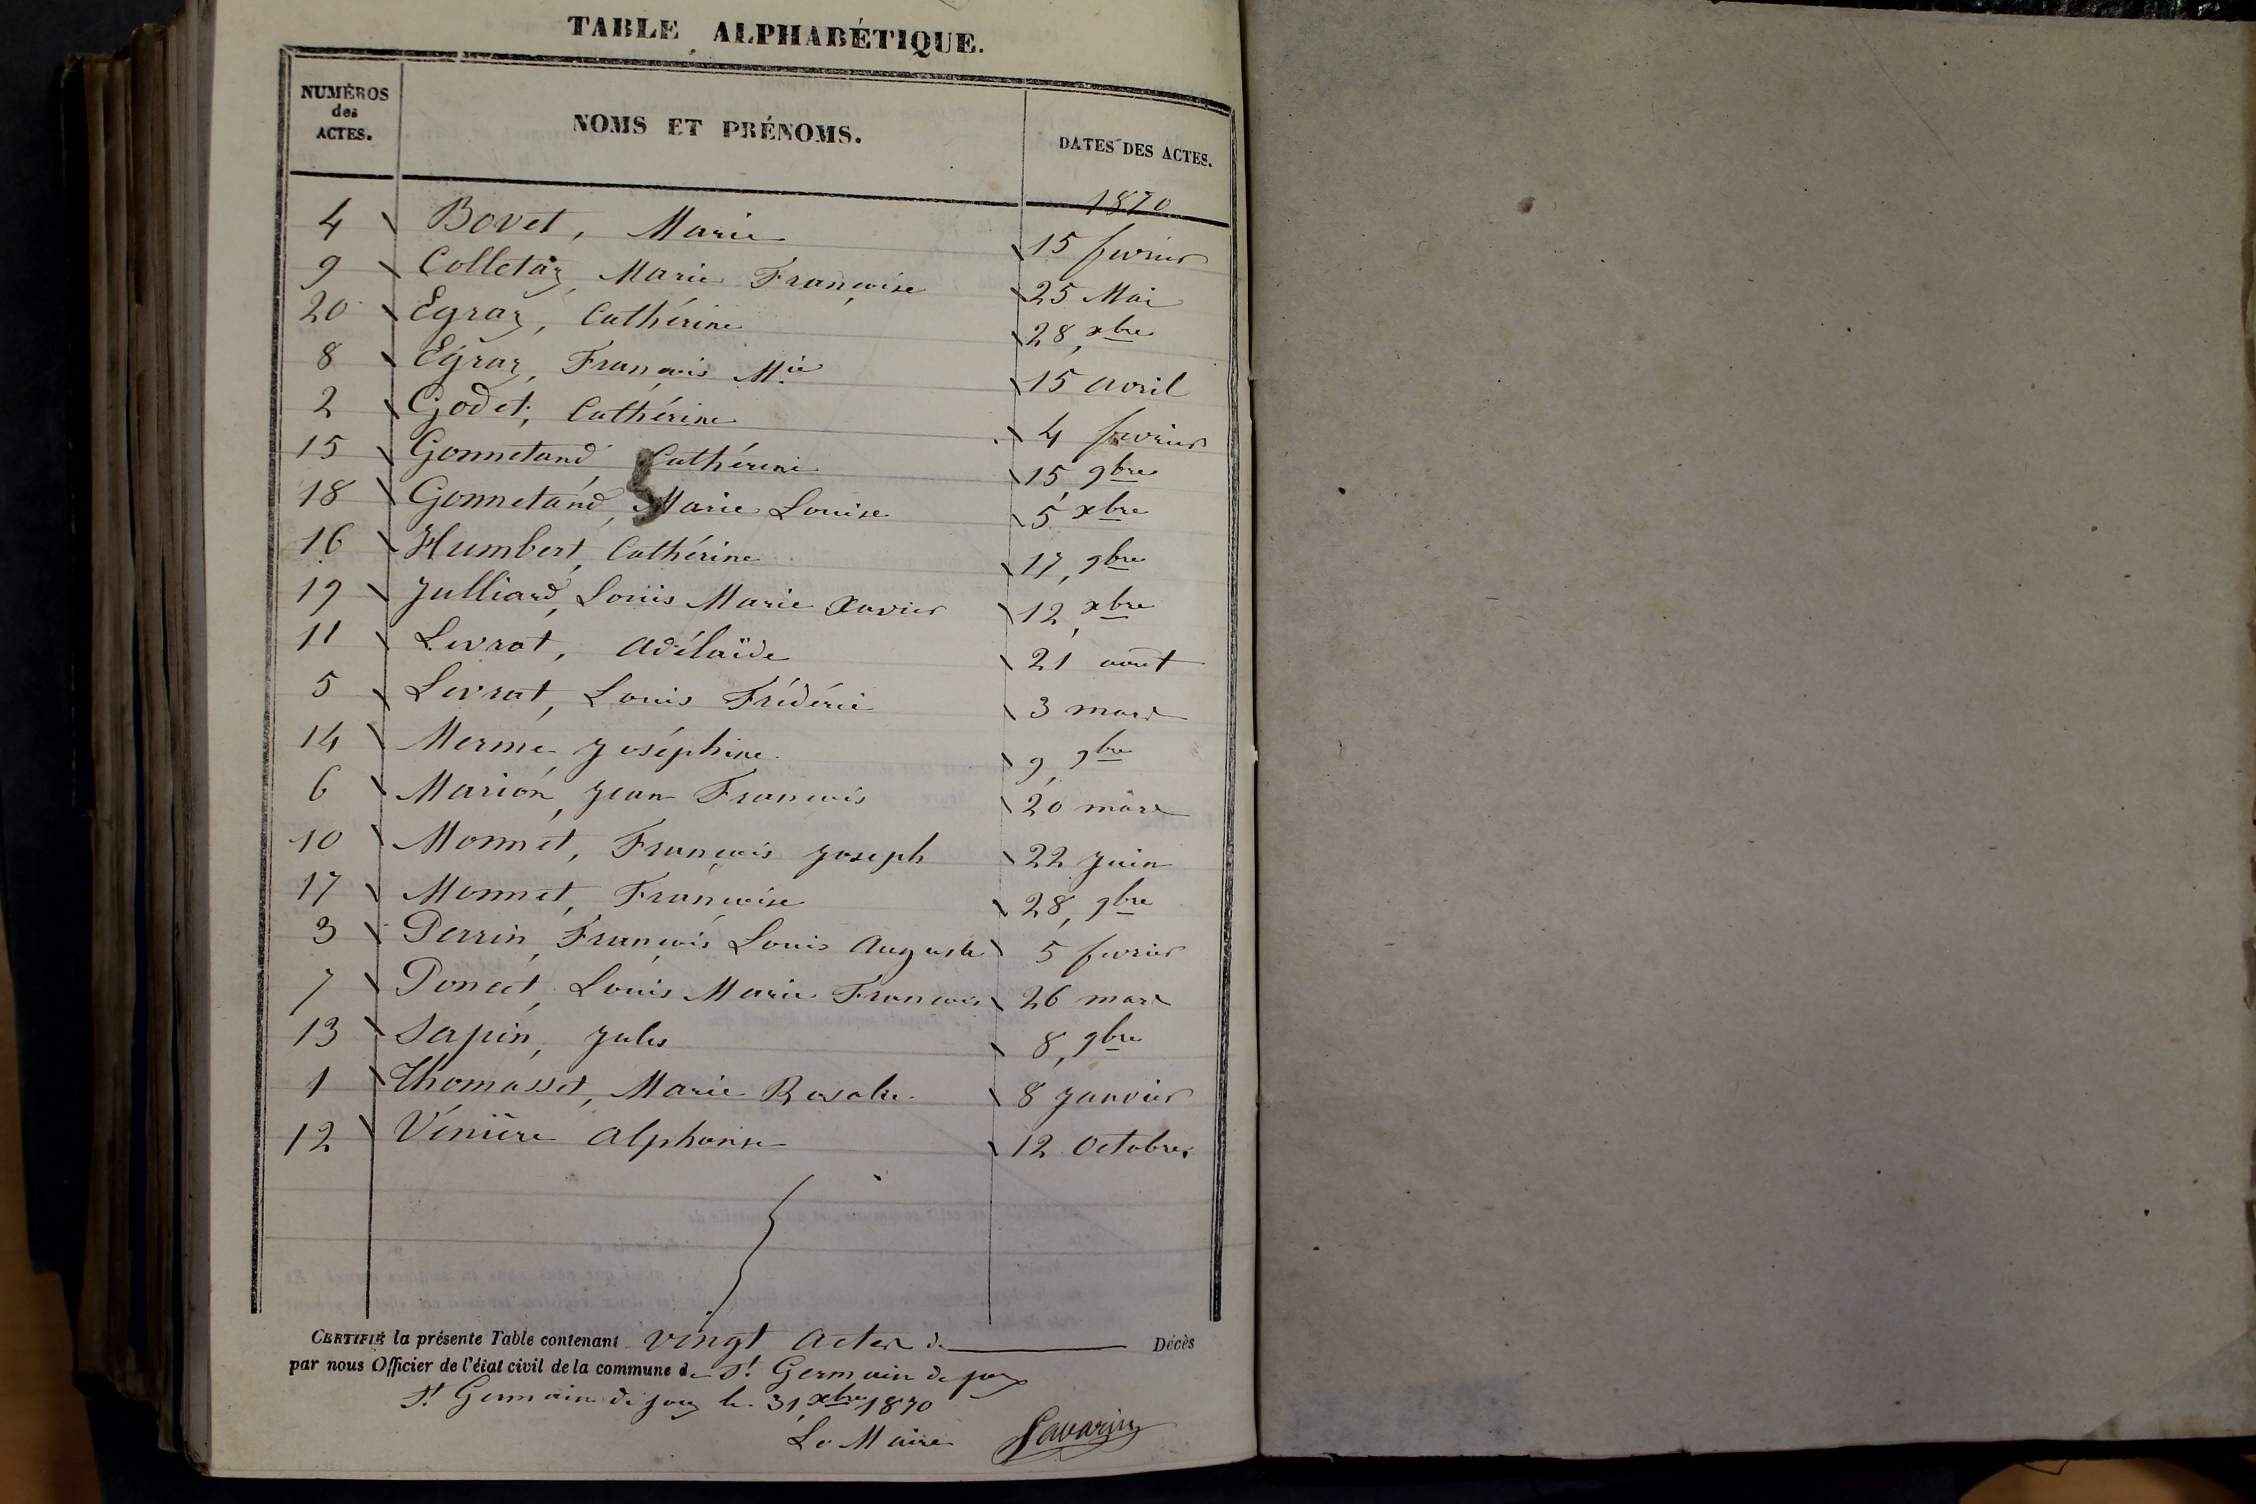 TABLE ALPHABÉTIQUE.
NUMÉROS des ACTES. NOMS ET PRÉNOMS. DATES DES ACTES.
1870
4 Bovet, Marie 15 fevrier
9 Colletaz, Marie Françoise 25 Mai
20 Egraz, Cathérine 28, xbre
8 Egraz, François Mie 15 avril
2 Godet, Cathérine 4 fevrier
15 Gonnetand, Cathérine 15, 9bre
18 Gonnetand, Marie Louise 5 xbre
16 Humbert, Cathérine 17, 9bre
19 Julliard, Louis Marie Xavier 12, xbre
11 Levrat, Adélaïde 21 aout
5 Levrat, Louis Frédéric 3 mars
14 Merme, Joséphine 9, 9bre
6 Marion, Jean François 20 mars
10 Monnet, François Joseph 22 Juin
17 Monnet, Françoise 28, 9bre
3 Perrin, François Louis Auguste 5 fevrier
7 Poncet, Louis Marie François 26 mars
13 Sapin, Jules 8, 9bre
1 Thomasset, Marie Rosalie 8 Janvier
12 Vénière Alphonse 12 Octobre
CERTIFIÉ la présente Table contenant vingt actes de Décès
par nous Officier de l'état civil de la commune de St Germain de joux
St Germain de joux le 31, xbre 1870
Le Maire Savarin